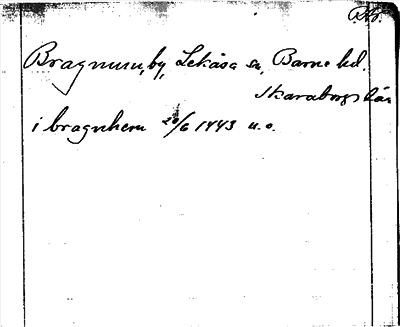 Bragnum, by, Lekåsa sn, Barne hd.
Skaraborgs län
i bragnhem 20/6 1443 u.o.